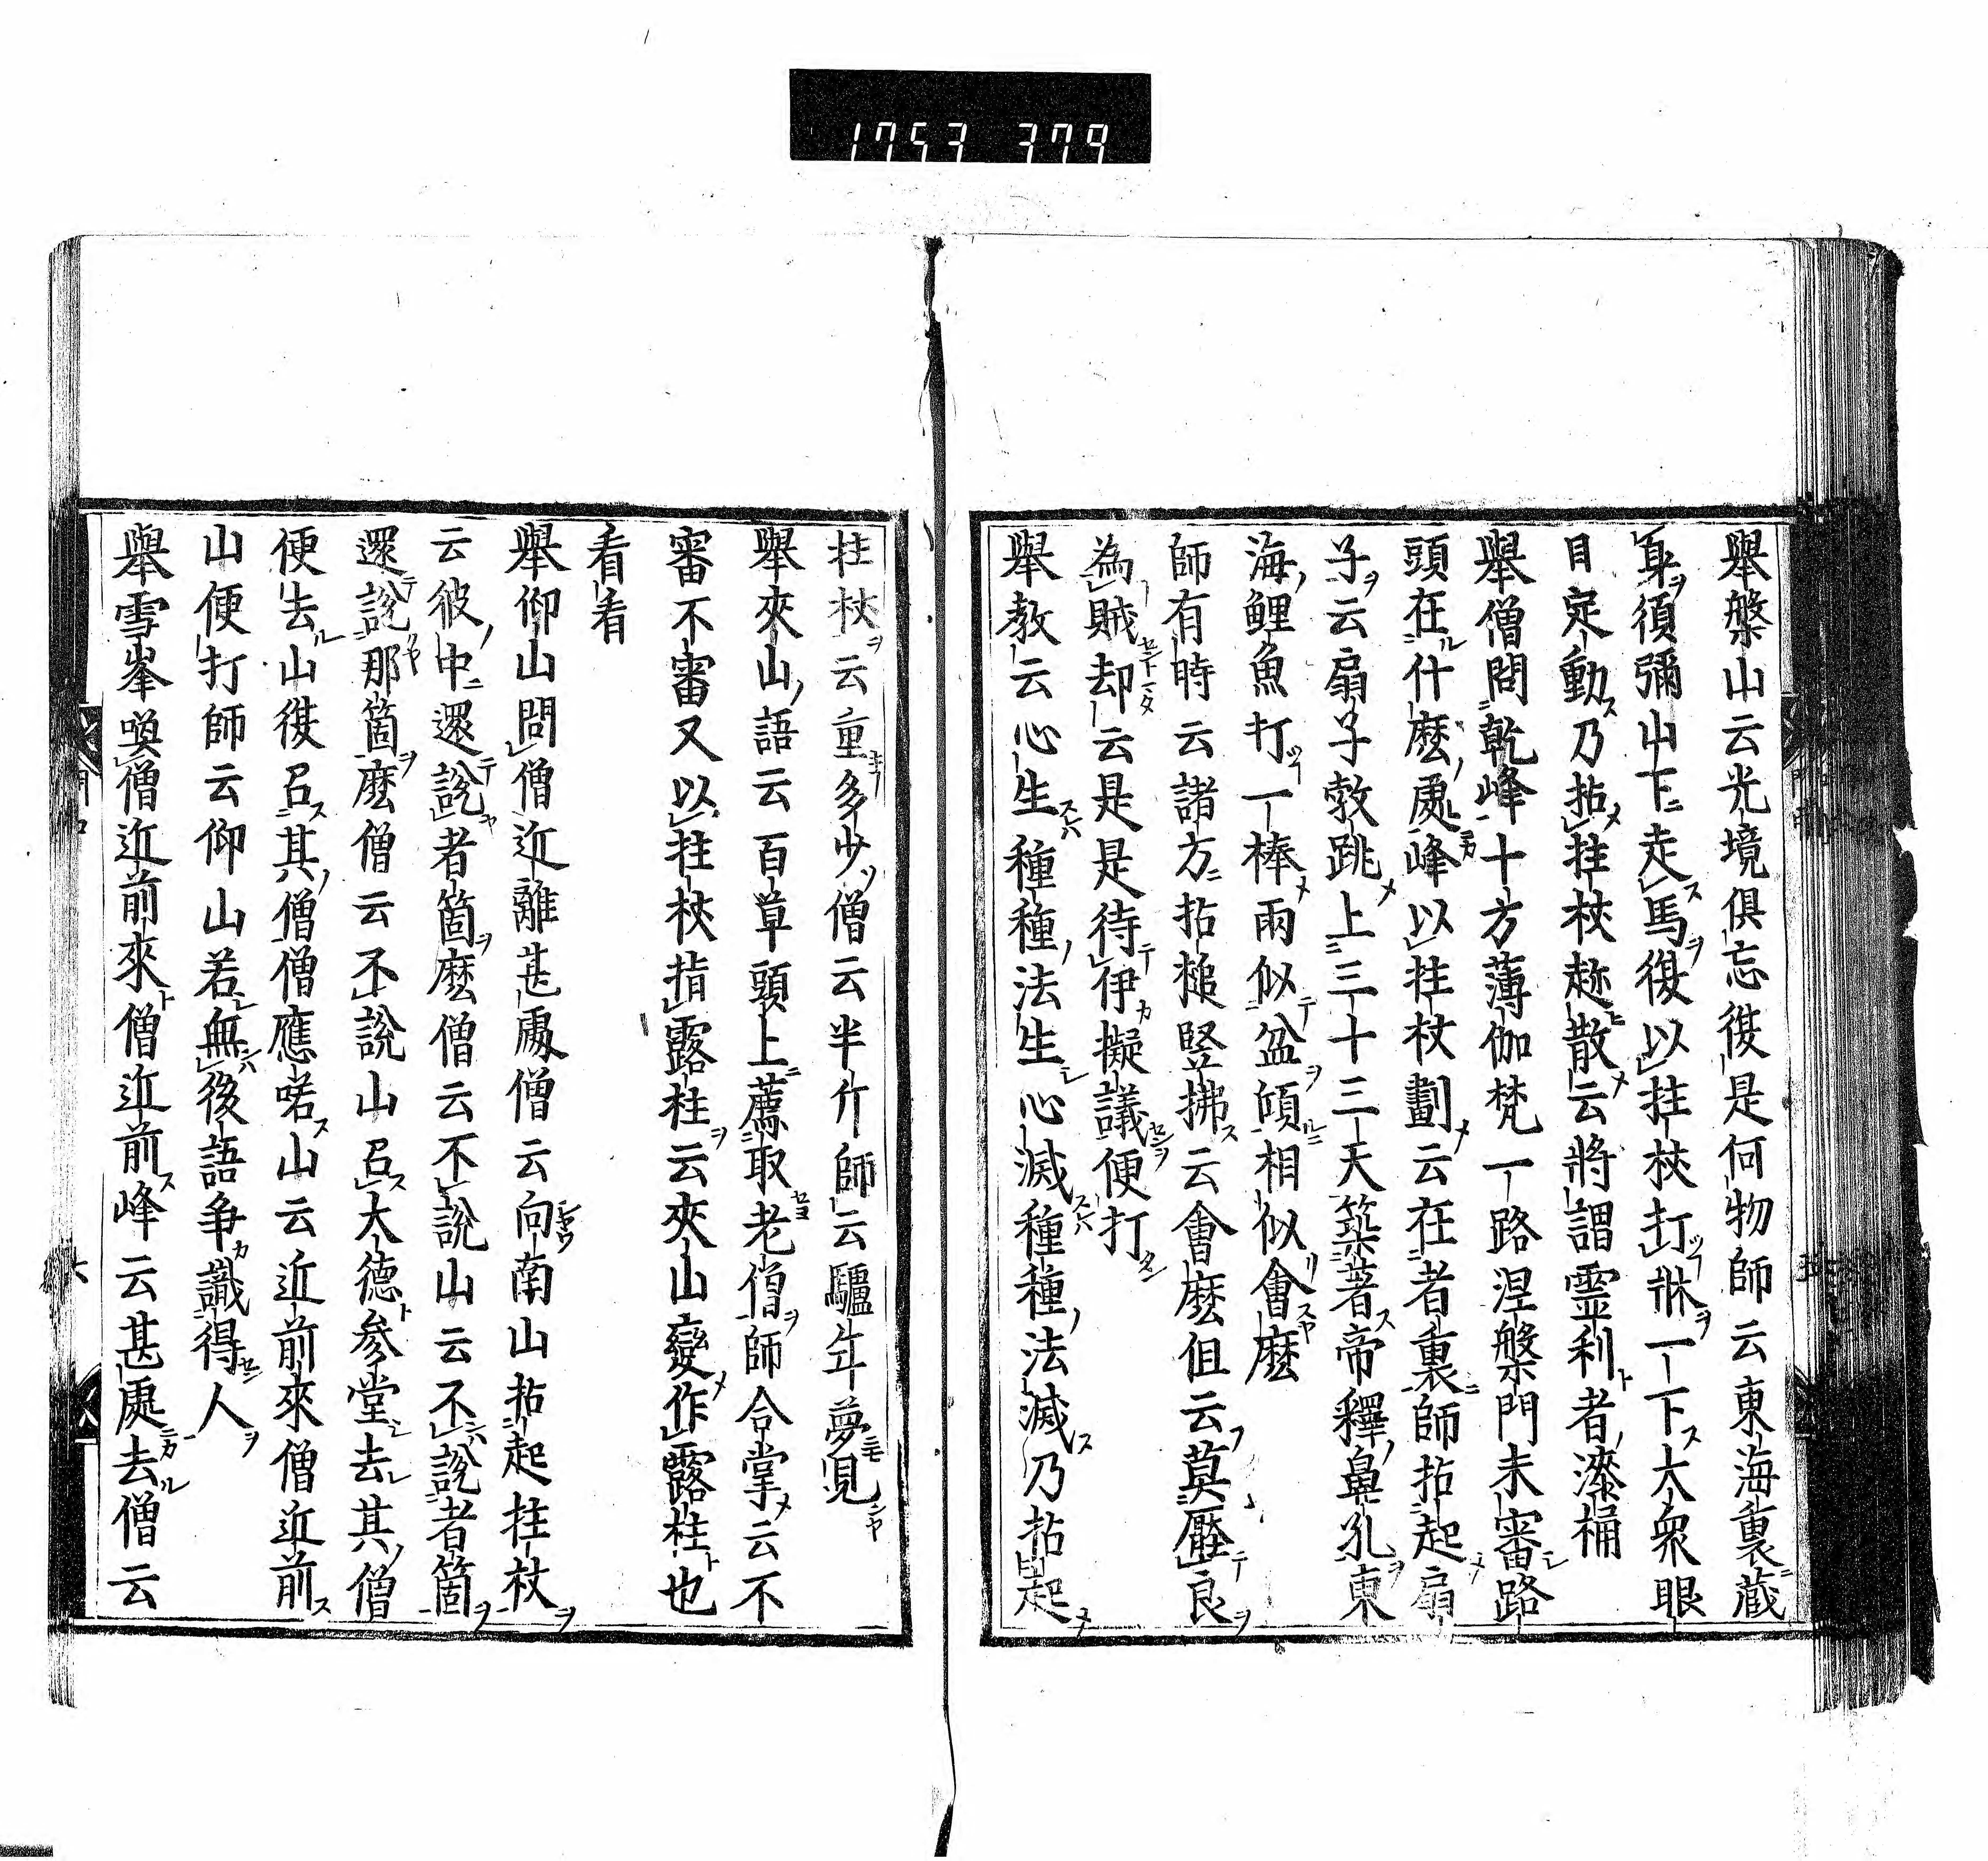 1753 379
舉槃山云光境俱忘復是何物師云東海裏藏
身須彌山下走馬復以拄杖打牀一下大衆眼
目定動乃拈拄杖趂散云將謂靈利者漆桶
舉僧問乾峰十方薄伽梵一路涅槃門未審路
頭在什麽處峰以拄杖劃云在者裏師拈起扇
子云扇子𨁝跳上三十三天築著帝釋鼻孔東
海鯉魚打一棒雨似盆傾相似會麽
師有時云諸方拈槌竪拂云會麽但云莫壓良
為賊却云是是待伊擬議便打
舉教云心生種種法生心滅種種法滅乃拈起
拄杖云重多少僧云半斤師云驢年夢見
舉夾山語云百草頭上薦取老僧師合掌云不
審不審又以拄杖指露柱云夾山變作露柱也
看看
舉仰山問僧近離甚處僧云向南山拈起拄杖
云彼中還說者箇麽僧云不說山云不說者箇
還說那箇麽僧云不說山召大德參堂去其僧
便去山復召其僧僧應喏山云近前來僧近前
山便打師云仰山若無後語争識得人
舉雪峯喚僧近前來僧近前峰云甚處去僧云